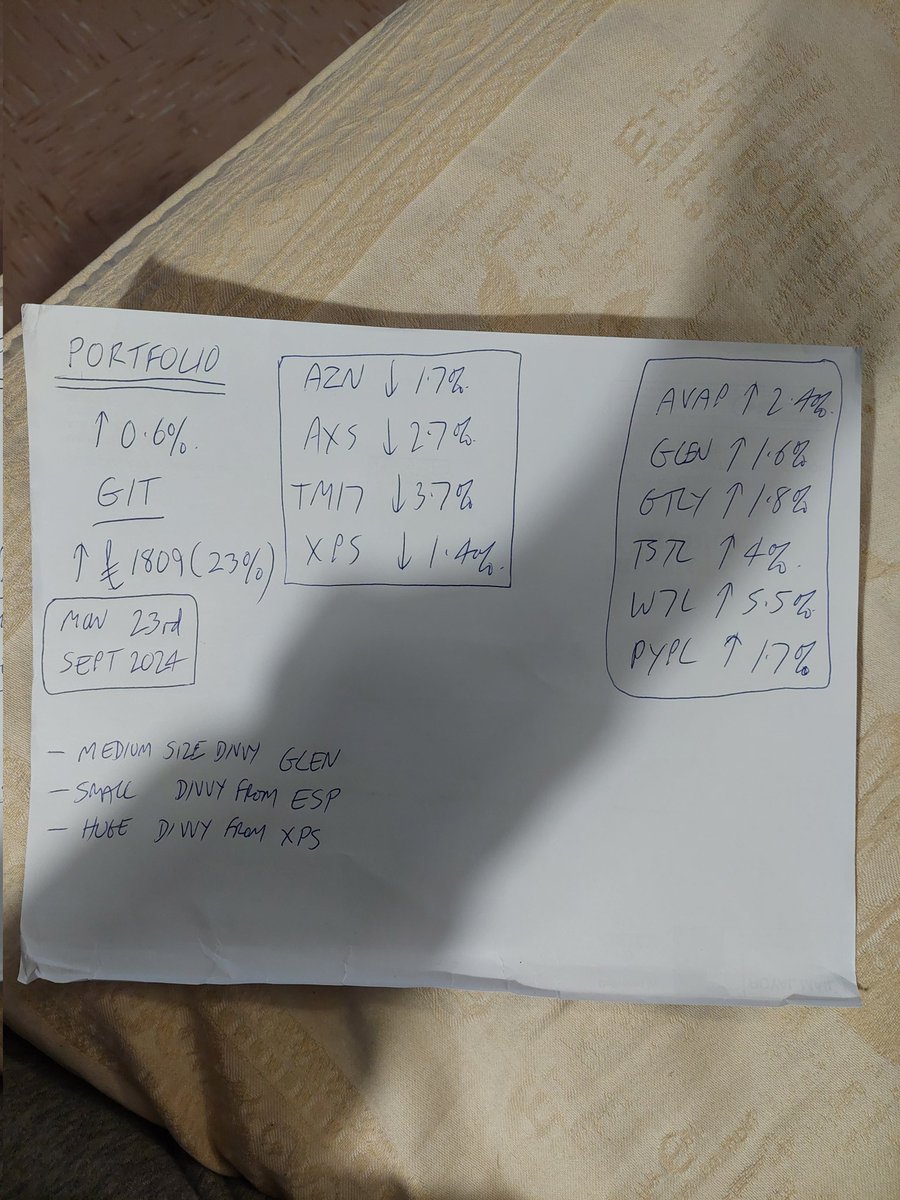 PORTFOLIO
↑ 0.6%.
GIT
↑ £1809 (23%)
MON 23rd
SEPT 2024
AZN ↓ 1.7%.
AXS ↓ 2.7%.
TM17 ↓ 3.7%
XPS ↓ 1.4%.
AVAP ↑ 2.4%.
GLEN ↑ 1.6%
GTLY ↑ 1.8%
TSTL ↑ 4%.
W7L ↑ 5.5%
PYPL ↑ 1.7%
- MEDIUM SIZE DIVVY GLEN
- SMALL DIVVY FROM ESP
- HUGE DIVVY FROM XPS